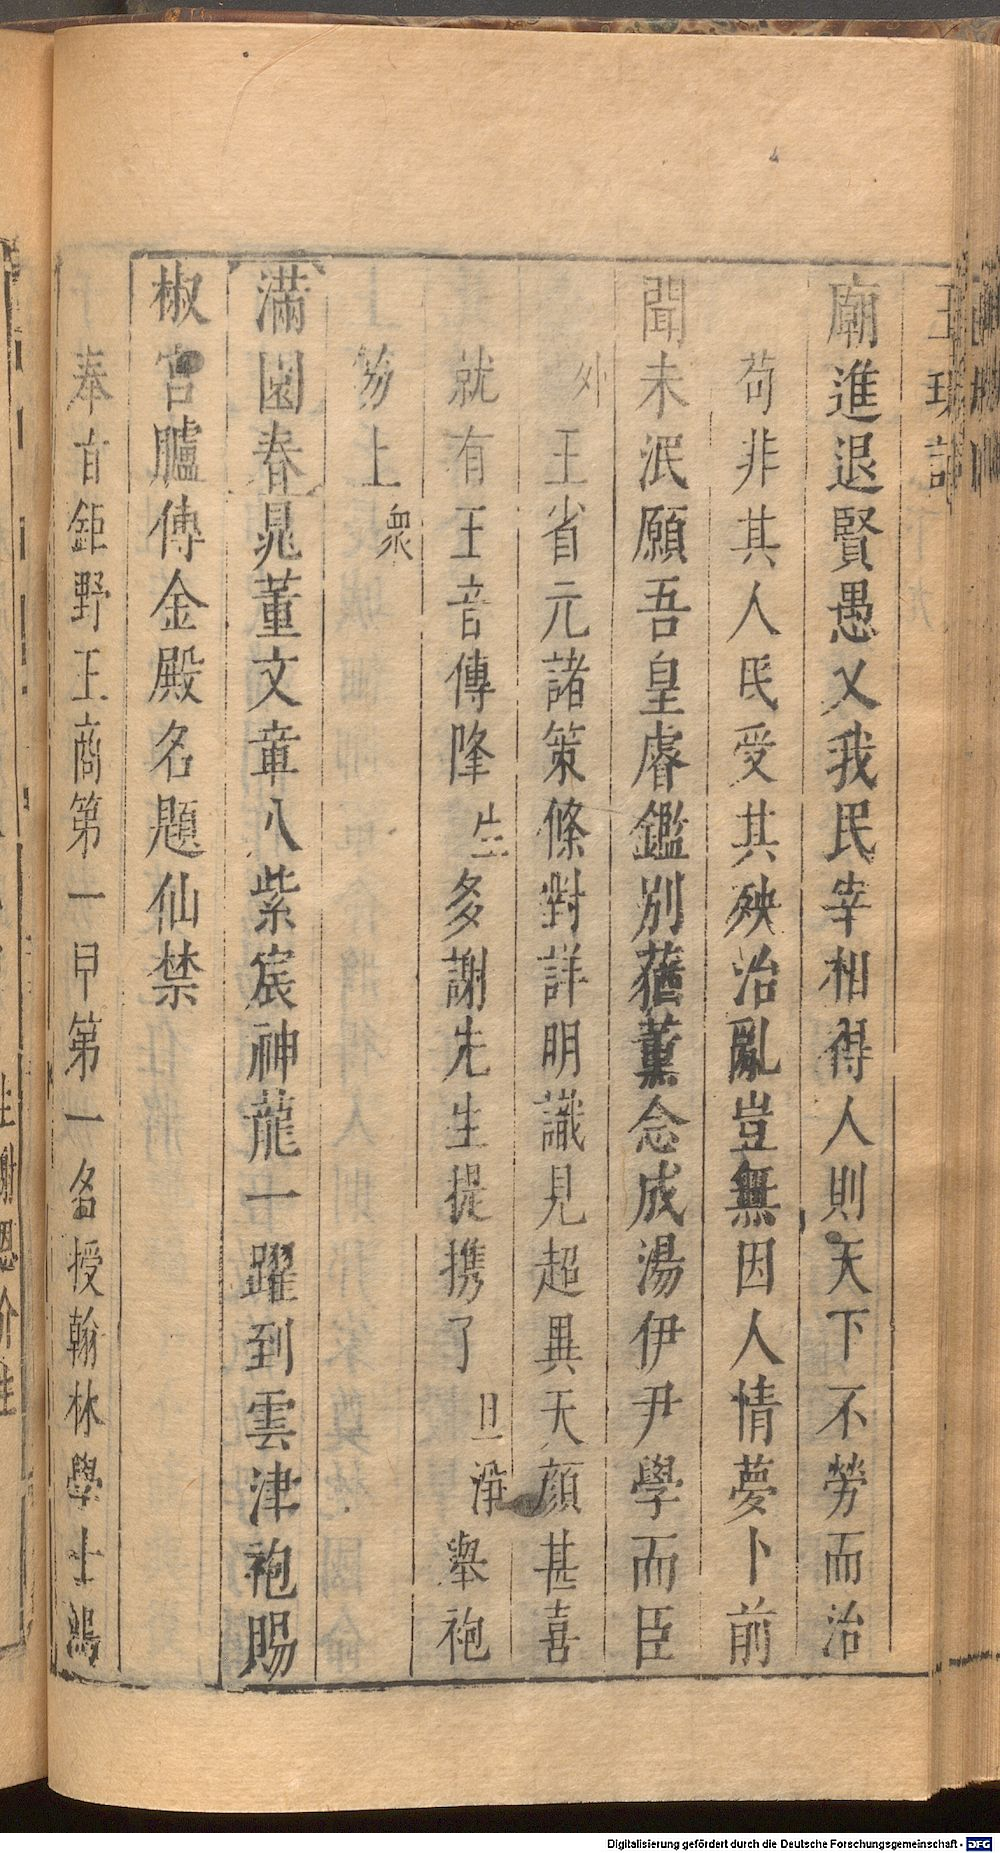 廟進退賢愚乂我民宰相得人則天下不勞而治
苟非其人民受其殃治亂豈無因人情夢卜前
聞未泯願吾皇睿鑑別蕕薰念成湯伊尹學而臣
外王省元諸策條對詳明識見超異天顏甚喜
就有王音傳降生多謝先生提携了旦淨舉袍
笏上衆
滿園春晁董文章八紫宸神龍一躍到雲津袍賜
椒宮臚傳金殿名題仙禁
奉旨鉅野王商第一甲第一名授翰林學士鴻
Digitalisierung gefördert durch die Deutsche Forschungsgemeinschaft - DFG